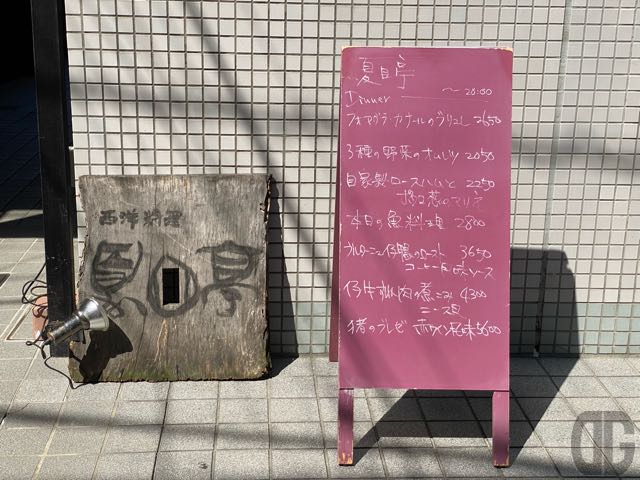 西洋料理
夏目亭
夏目亭
Dinner 〜20:00
フォアグラ・カナールのブリュレ 2650
3種の野菜のオムレツ 2050
自家製ロースハムと 2250
今日の魚料理 2800
ブルターニュ仔鴨のロースト 3650
コーヒー風味ソース
仔牛すね肉の煮こみ 4300
ニース風
猪のブレゼ 赤ワイン風味 3600
DG